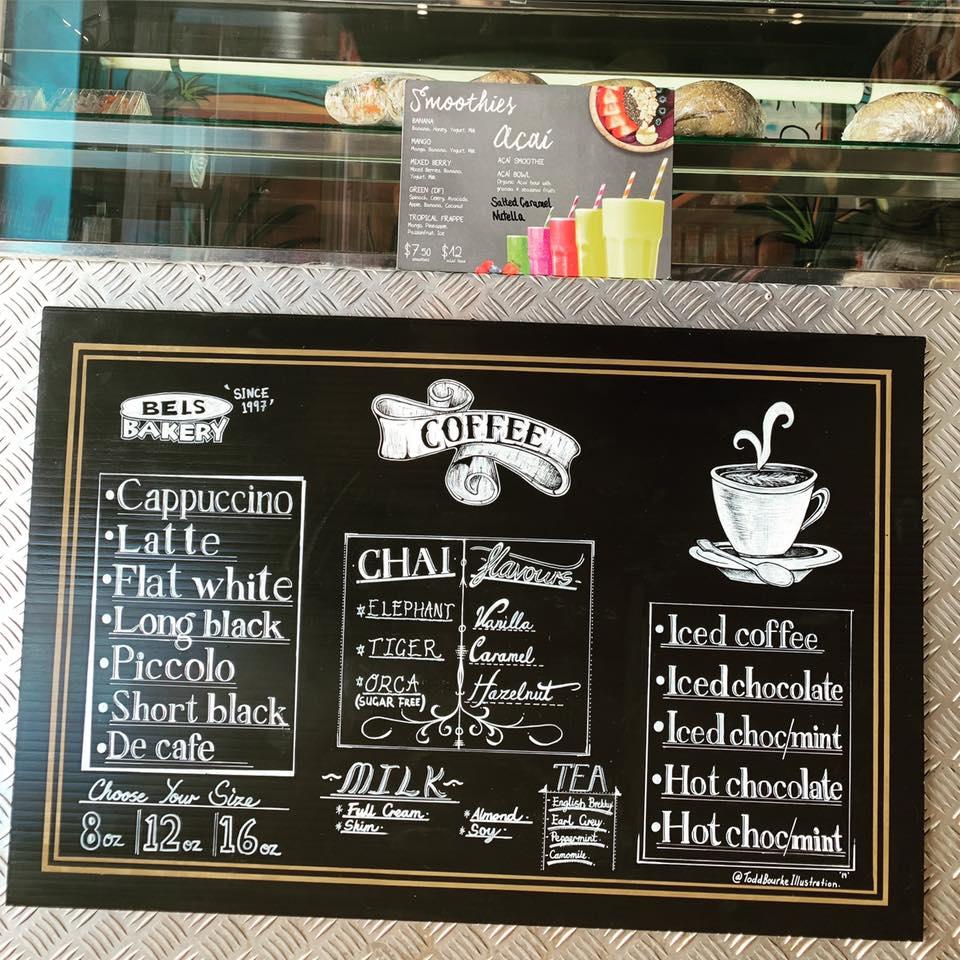 Smoothies
BANANA
Banana, Honey, Yogurt, Milk
MANGO
Mango, Banana, Yogurt, Milk
MIXED BERRY
Mixed Berries, Banana,
Yogurt, Milk
GREEN (DF)
Spinach, Celery, Avocado,
Apple, Banana, Coconut
TROPICAL FRAPPE
Mango, Pineapple,
Passionfruit, Ice
$7.50 $12
Acaí
ACAÍ SMOOTHIE
ACAÍ BOWL
Organic Acaí bowl with
granola & seasonal fruits
Salted Caramel
Nutella
BELS
BAKERY
'SINCE
1997'
COFFEE
•Cappuccino
•Latte
•Flat white
•Long black
•Piccolo
•Short black
•De cafe
Choose Your Size
8oz | 12oz | 16oz
CHAI
*ELEPHANT
*TIGER
*ORCA
(SUGAR FREE)
flavours
Vanilla
Caramel
Hazelnut
~MILK~
*Full Cream
*Skim
*Almond
*Soy
TEA
-English Brekky
-Earl Grey
-Peppermint
-Camomile
•Iced coffee
•Iced chocolate
•Iced choc/mint
•Hot chocolate
•Hot choc/mint
@ToddBourkeIllustration. '19'